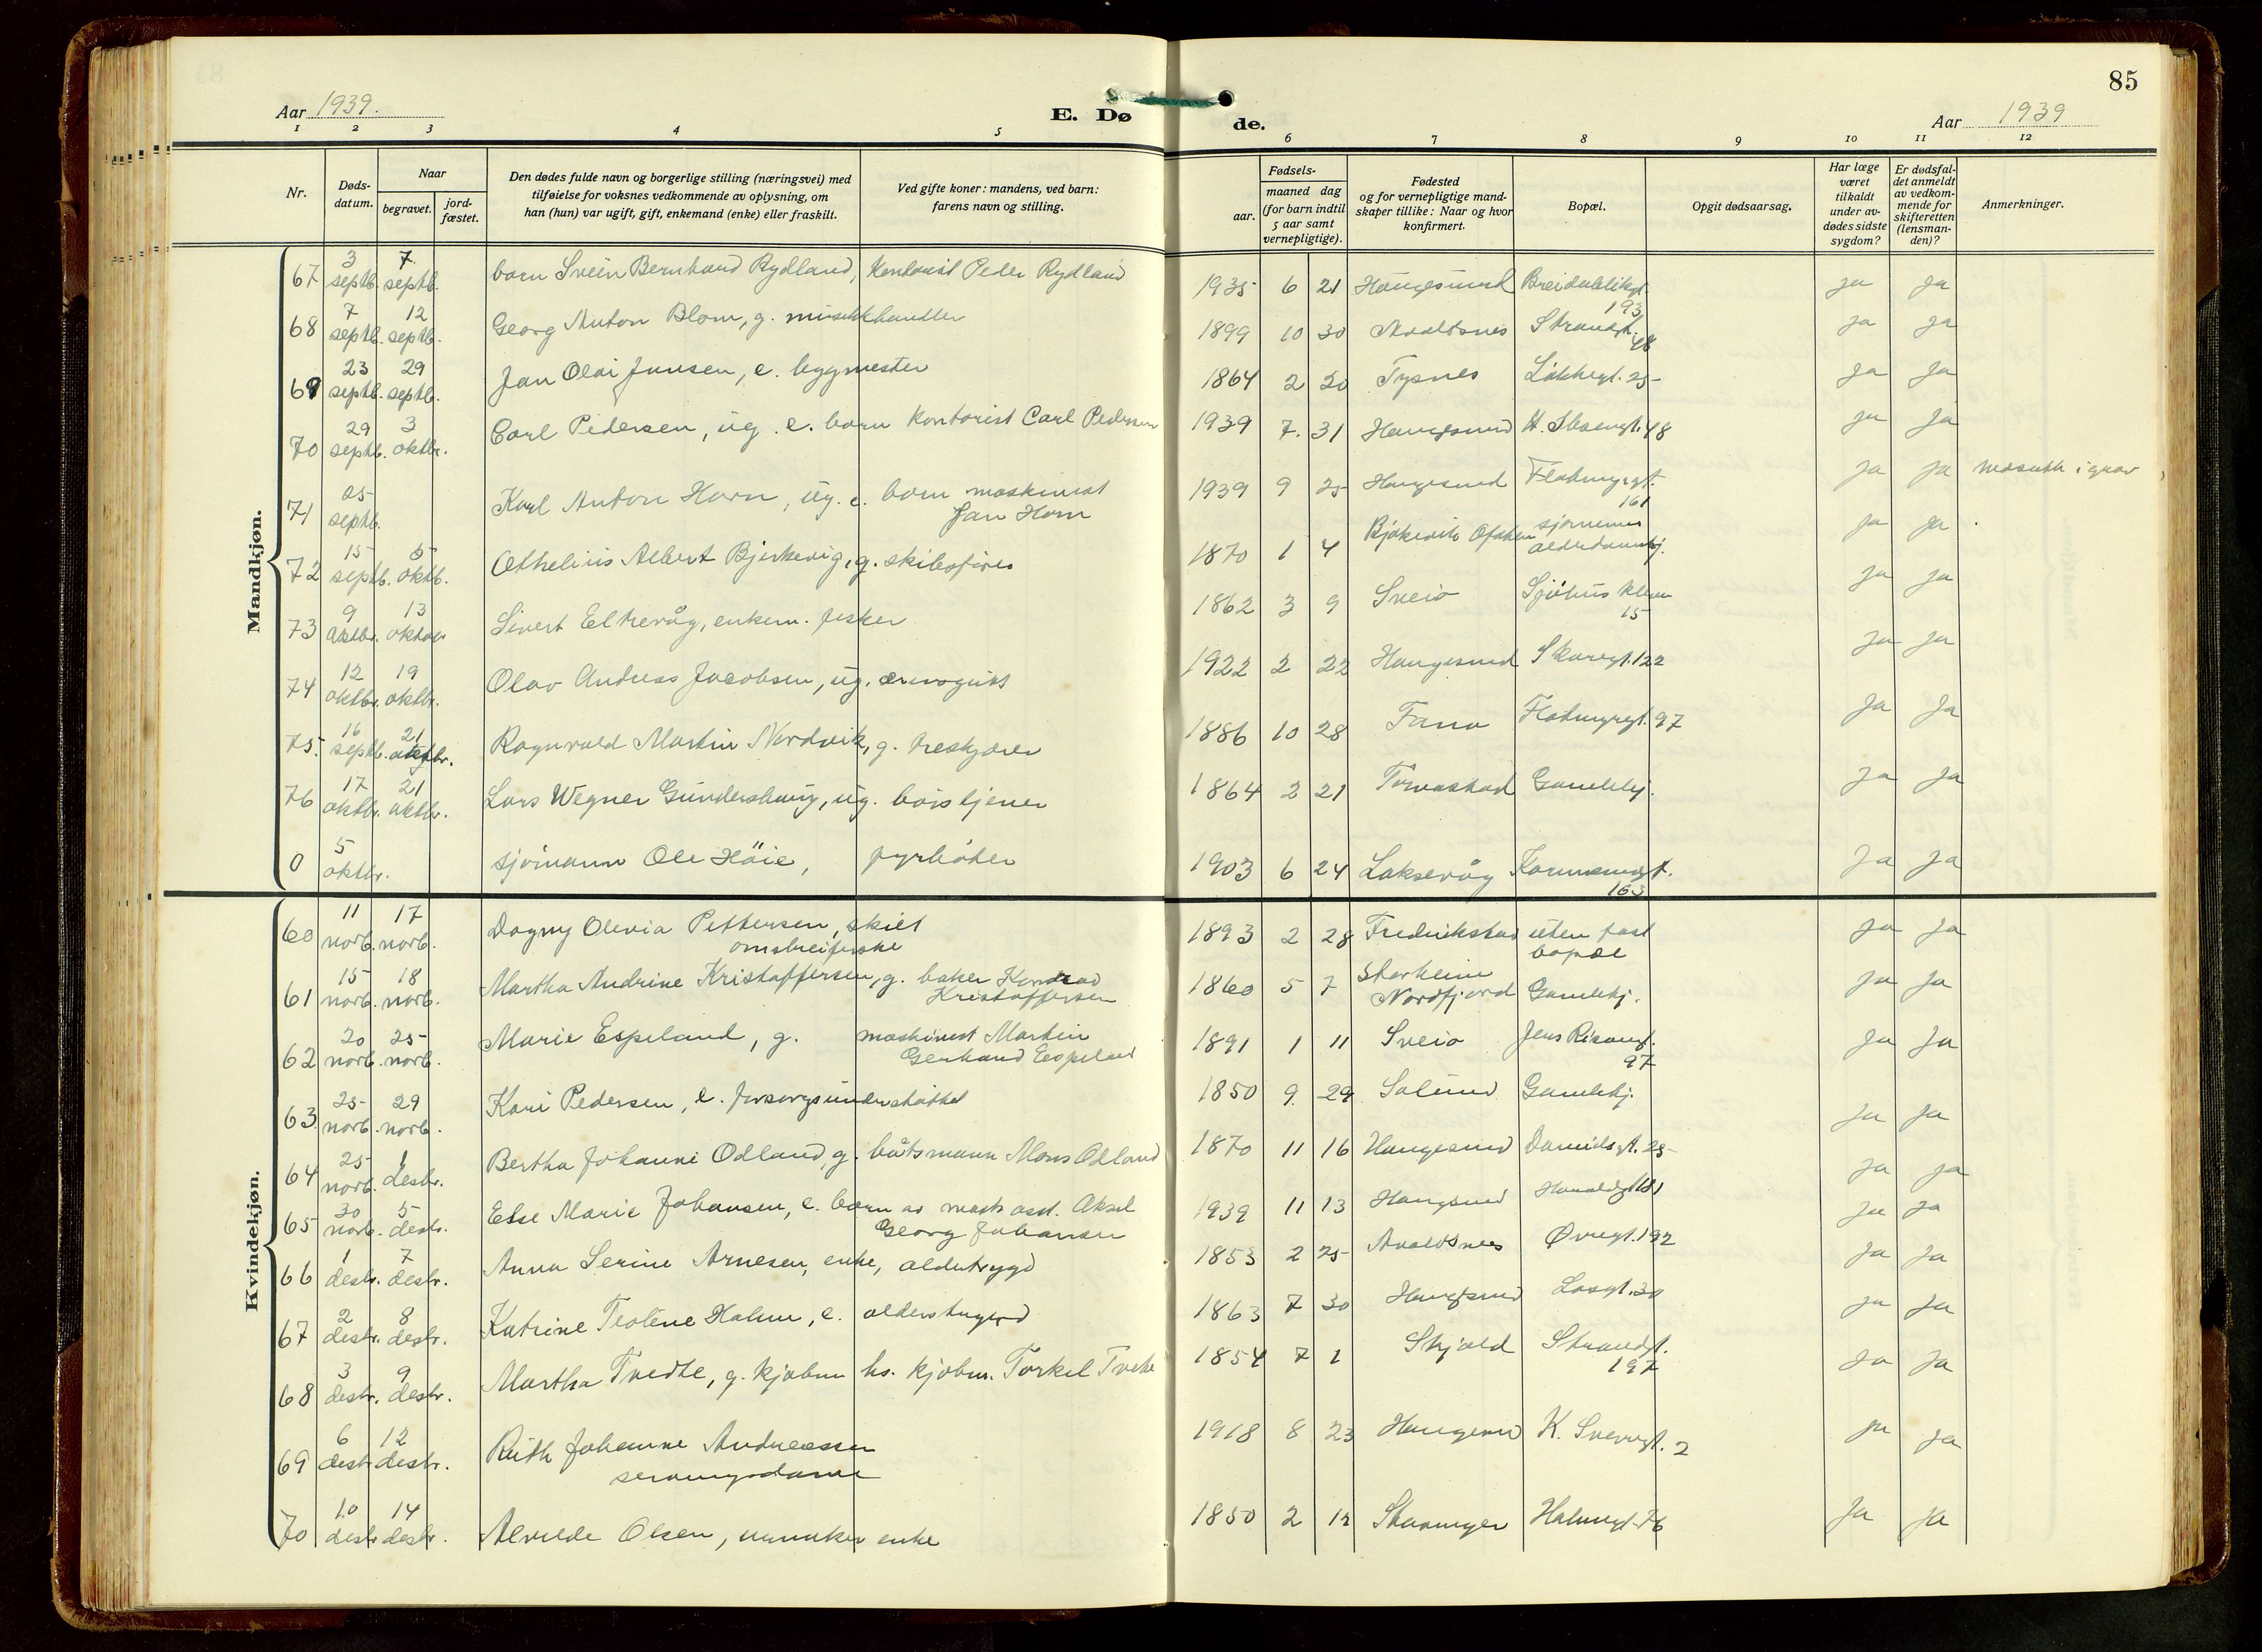 85
Aar 1939.
E. Døde.
Aar 1939
1 2 3 4 5 6 7 8 9 10 11 12
Nr.
Døds-
datum.
Naar
begravet.
jord-
fæstet.
Den dødes fulde navn og borgerlige stilling (næringsvei) med
tilføielse for voksnes vedkommende av oplysning, om
han (hun) var ugift, gift, enkemand (enke) eller fraskilt.
Ved gifte koner: mandens, ved barn:
farens navn og stilling.
Fødsels-
aar.
maaned dag
(for barn indtil
5 aar samt
vernepligtige).
Fødested
og for vernepligtige mand-
skaper tillike: Naar og hvor
konfirmert.
Bopæl.
Opgit dødsaarsag.
Har læge
været
tilkaldt
under av-
dødes sidste
sygdom?
Er dødsfal-
det anmeldt
av vedkom-
mende for
skifteretten
(lensman-
den)?
Anmerkninger.
Mandkjøn.
67 3 septb. 7 septb. barn Svein Bernhard Rydland, kontorist Peder Rydland 1935 6 21 Haugesund Breidablikgt. 193 ja ja
68 7 septb. 12 septb. Georg Anton Blom, g. musikkhandler 1899 10 30 Avaldsnes Strandgt. 48 ja ja
69 23 septb. 29 septb. Jan Olai Jansen, e. byggmester 1864 2 20 Tysnes 25 ja ja
70 29 septb. 3 oktbr. Carl Pedersen, ug. e. barn kontorist Carl Pedersen 1939 7. 31 Haugesund H. Ibsengt. 48 ja ja
71 25 septb. Karl Anton Horn, ug. e. barn maskinist
Jan Horn 1939 9 25 Haugesund Flotmyrgt. 161 ja ja i grav
72 15 septb. 5 oktb. Othelius Albert Bjerkevig, g. skibsfører 1870 1 4 Ofoten sjømennes
aldersheim ja ja
73 9 oktbr. 13 Sivert Eltrevåg, enkem. fisker 1862 3 9 Sveio 15 ja ja
74 12 oktbr. 19 oktbr. Olav Andreas Jacobsen, ug. 1922 2 22 Haugesund Skaregt. 122 ja ja
75. 16 septb. 21 Ragnvald Martin Nordvik, g. treskjærer 1886 10 28 Fana Flotmyrgt. 97 ja ja
76 17 oktbr. 21 oktbr. Lars Wegner Gunderhaug, ug. 1864 2 21 Torvastad Gamlehj. ja ja
0 5 oktbr. sjømann Ole Høie, fyrbøter 1903 6 24 Laksevåg Karmsundgt. 163 ja ja
Kvindekjøn.
60 11 novb. 17 novb. Dagny Olevia Pettersen, skilt
omstreiferske 1893 2 28 Fredrikstad uten fast
bopæl ja ja
61 15 novb. 18 novb. Martha Andrine Kristoffersen, g. baker Konrad
Kristoffersen 1860 5 7 Starheim
Nordfjord Gamlehj. ja ja
62 20 novb. 25 novb. Marie Espeland, g. maskinist Martin
Gerhard Espeland 1891 1 11 Sveio Jens Risøensgt. 97 ja ja
63 25 novb. 29 novb. Kari Pedersen, e. forsorgsunderstøttet 1850 9. 29 Solund Gamlehj. ja ja
64 25 novb. 1 desbr. Bertha Johanne Odland, g. båtsmann Mons Odland 1870 11 16 Haugesund 25 ja ja
65 30 novb. 5 desbr. Else Marie Johansen, e. barn av Aksel
Georg Johansen 1939 11 13 Haugesund Haraldsgt. 181 ja ja
66 1 desbr. 7 desbr. Anna Serine Arnesen, enke, alderstrygd 1853 2 25 Avaldsnes Øvregt. 192 ja ja
67 2 desbr. 8 desbr. Katrine Teoline Holm, e. alderstrygd 1863 7 30 Haugesund 30 ja ja
68 3 desbr. 9 desbr. Martha Tvedte, g. kjøbm hs. kjøbm. Torkel Tvedte 1854 7 1 Skjold Strandgt. 197 ja ja
69 6 desbr. 12 desbr. Ruth Johanne Andreassen
serveringsdame 1918 8 23 Haugesund K. Sverresgt. 2 ja ja
70 10 desbr. 14 desbr. Alvilde Olsen, enke 1850 2 12 Stavanger 76 ja ja